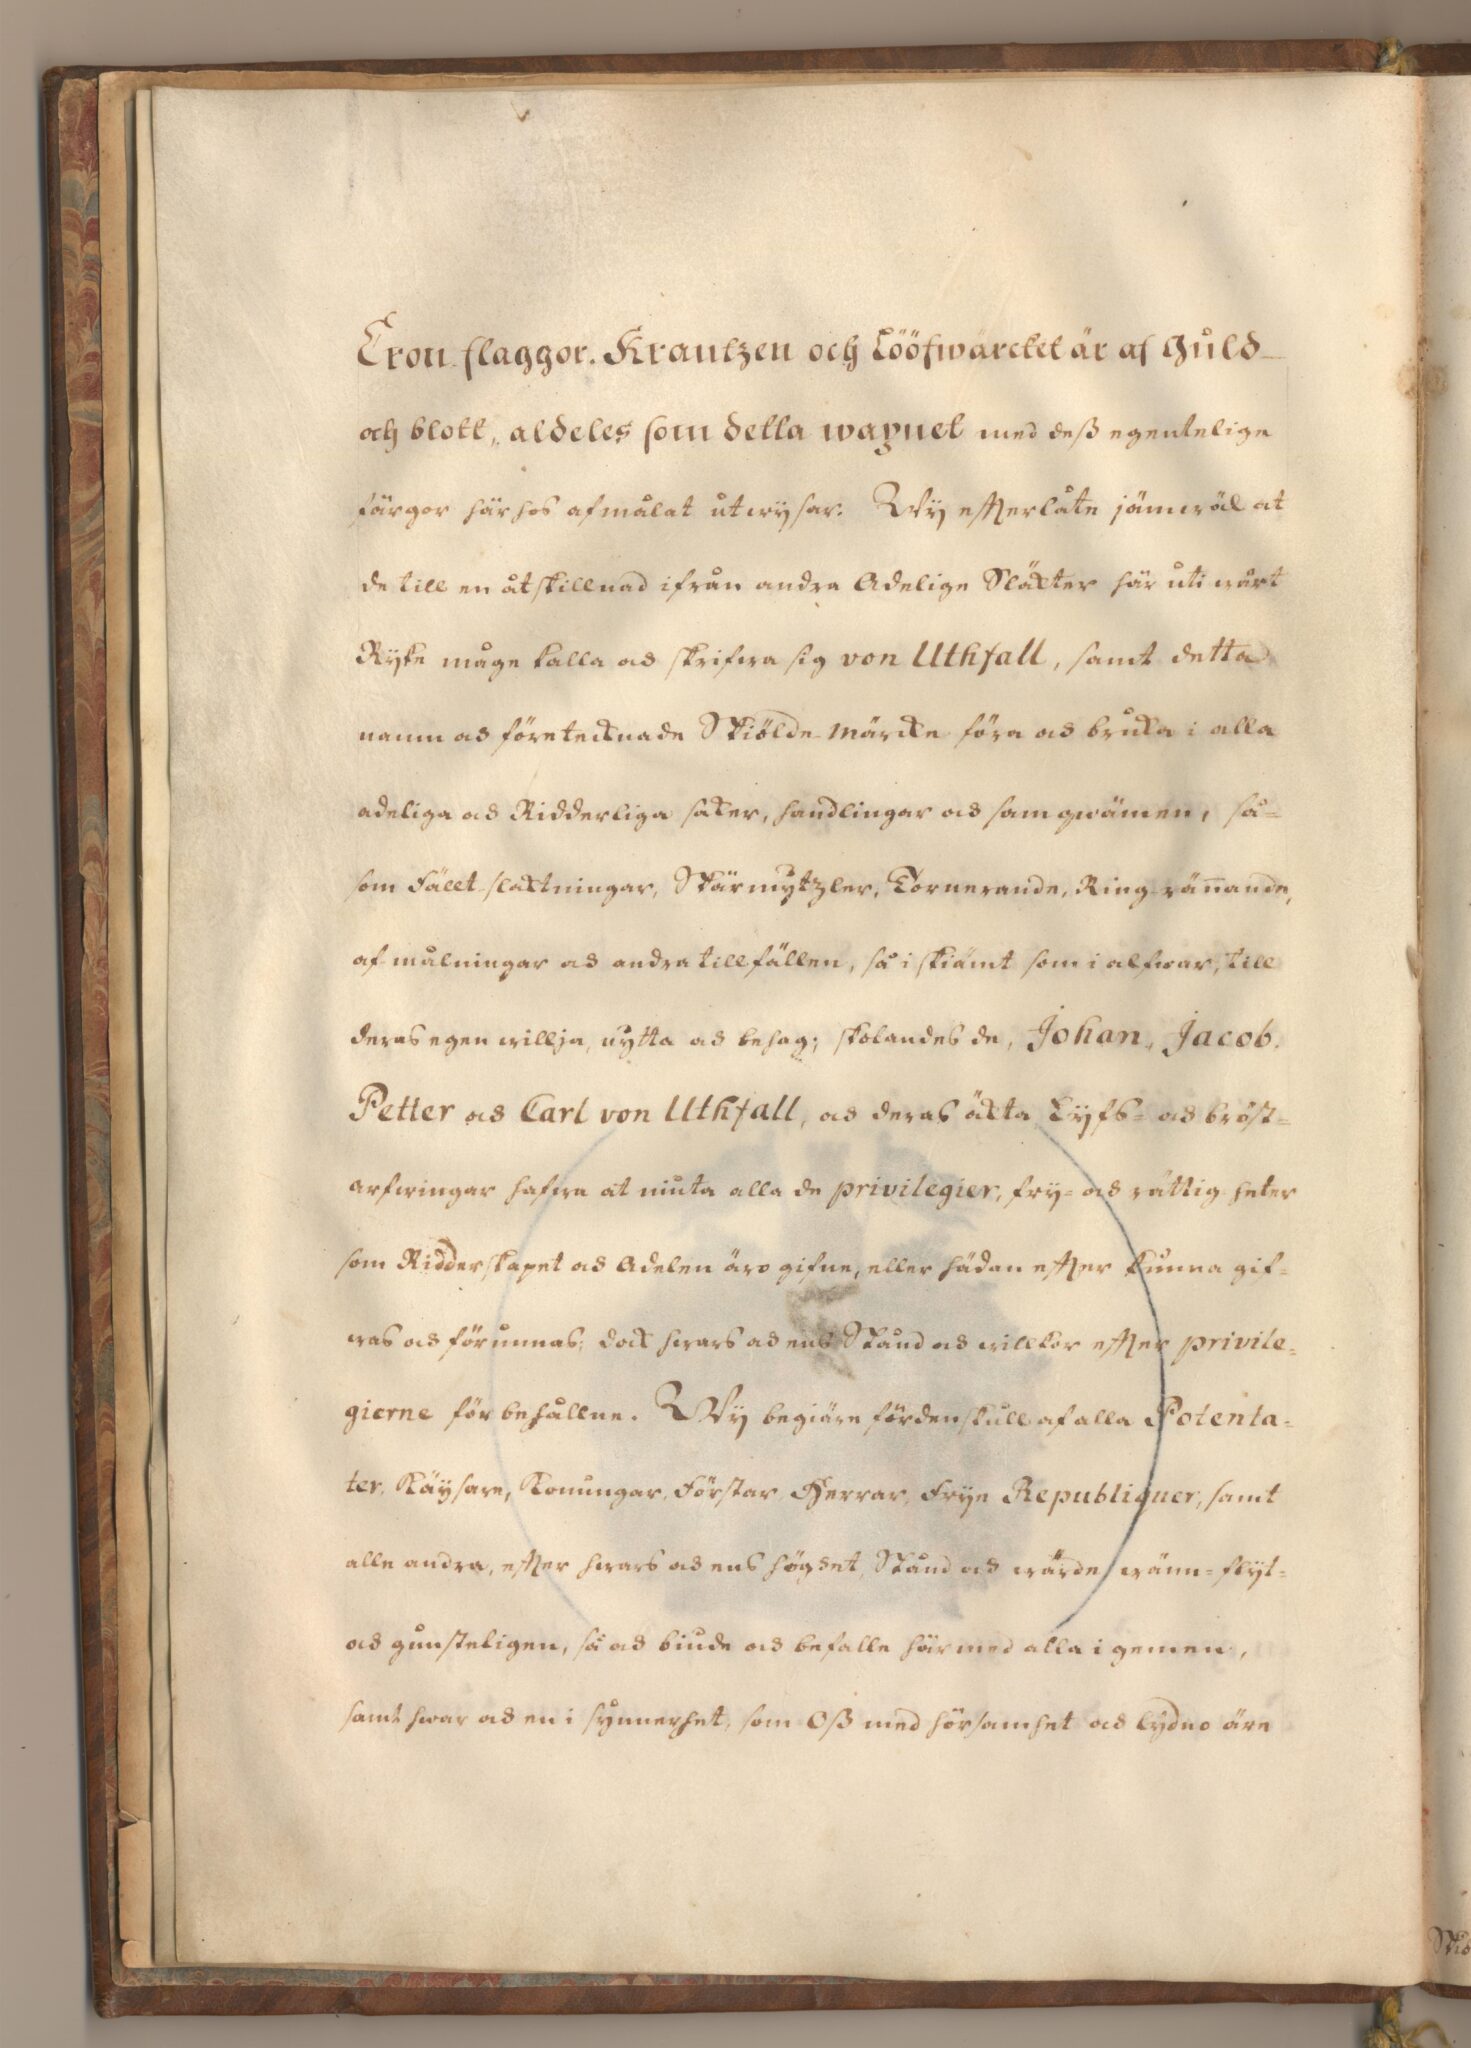 Cron flaggor. Krantzen och Lööfwärcket är af Guld
och blott, aldeles som detta wapnet med deß egentelige
färgor här hos afmålat utwysar. Wy efterlåte jämwäl at
de till en åtskillnad ifrån andra Adelige Släckter här uti wårt
Ryke måge kalla och skrifwa sig von Uthfall, samt detta
namn och företecknade Skiölde-märcke föra och bruka i alla
adeliga och Ridderliga saker, handlingar och samqwämen, så-
som Fält-slacktningar, Skärmytzler, Tornerande, Ring-rännande,
afmålningar och andra tillfällen, så i skiämt som i alfwar, till
deras egen willja, nytta och behag; skolandes de, Johan, Jacob,
Petter och Carl von Uthfall, och deras äckta Lyfs- och bröst-
arfwingar hafwa at niuta alla de privilegier, fry- och rättig heter
som Ridderskapet och Adelen äro gifne, eller hädan efter kunna gif-
was och förunnas; dock hwars och ens Stånd och willkor efter privile-
gierne förbehållne. Wy begiäre fördenskull af alla Potenta-
ter, Käysare, Konungar, Förstar, Herrar, Frye Republiquer, samt
alle andra, efter hwars och ens högdet, Stånd och wärde wänn-flyt-
och gunsteligen, så och biude och befalle här med alla i gemen,
samt hwar och en i synnerhet, som Oß med hörsamhet och lydno äre